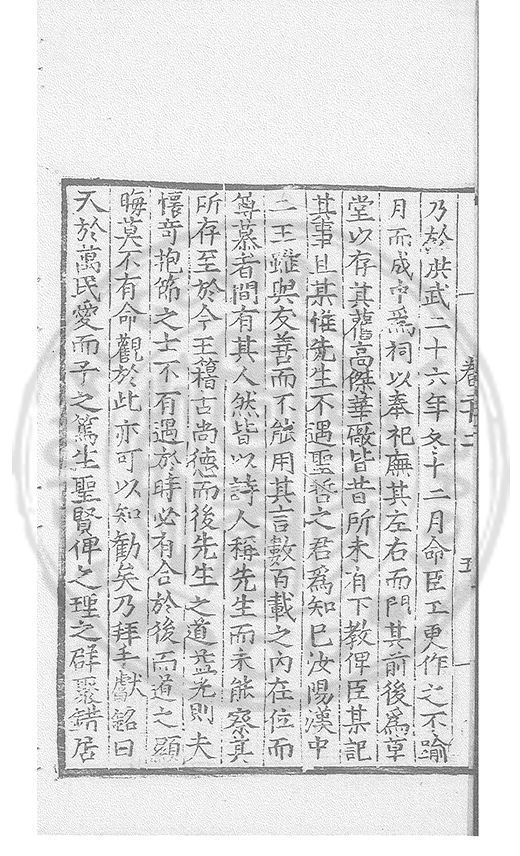 乃於洪武二十六年冬十二月命臣工更作之不踰
月而成中爲祠以奉祀廡其左右而門其前後爲草
堂以存其舊高傑華敞皆昔所未有下教俾臣某記
其事且某惟先生不遇聖哲之君爲知巳汝陽漢中
二王雖與友善而不能用其言數百載之內在位而
尊慕者間有其人然皆以詩人稱先生而未能察其
所存至於今王稽古尚德而後先生之道益光則夫
懷奇抱節之士不有遇於時必有合於後而道之顯
晦莫不有命觀於此亦可以知勸矣乃拜手獻銘曰
天於萬民愛而子之篤生聖賢俾之理之群聚錯居
卷二十二
五